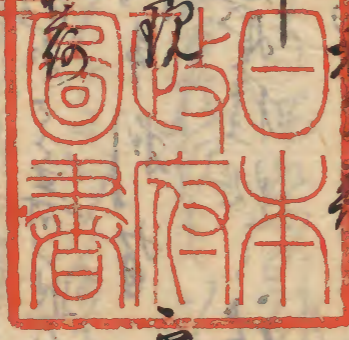 日本
政府
圖書